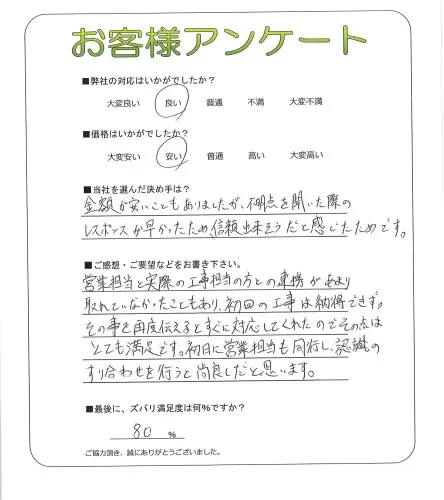 お客様アンケート
■弊社の対応はいかがでしたか？
大変良い　良い　普通　不満　大変不満
■価格はいかがでしたか？
大変安い　安い　普通　高い　大変高い
■当社を選んだ決め手は？
金額が安いこともありましたが、不明点を聞いた際の
レスポンスが早かったため、信頼出来そうだと感じたためです。
■ご感想・ご要望などをお書き下さい。
営業担当と実際の工事担当の方との連携があまり
取れていなかったこともあり、初回の工事は納得できず。
その事を再度伝えるとすぐに対応してくれたのでその点は
とても満足です。初日に営業担当も同行し、認識の
すり合わせを行うと尚良しだと思います。
■最後に、ズバリ満足度は何％ですか？
80 ％
ご協力頂き、誠にありがとうございました。